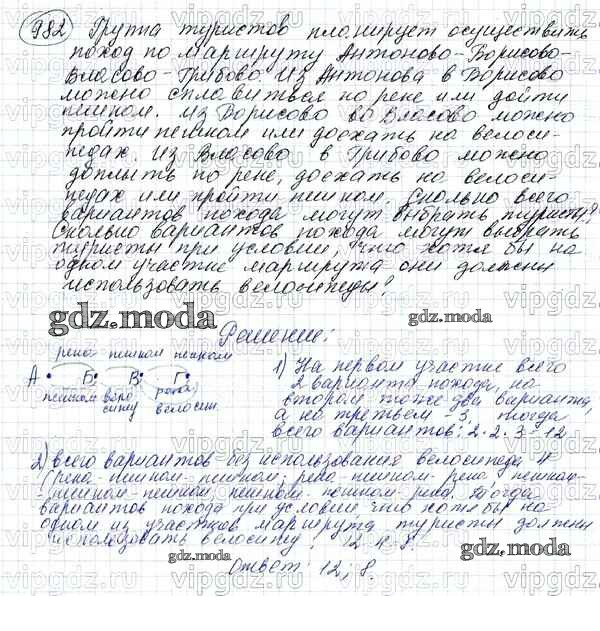 982 Группа туристов планирует осуществить
поход по маршруту Антоново-Борисово-
Власово-Грибово. Из Антонова в Борисово
можено сплавиться по реке или дойти
пешком. Из Борисово во Власово можно
пройти пешком или доехать на велоси-
педах. Из Власово в Грибово можно
доплыть по реке, доехать на велоси-
педах или пройти пешком. Сколько всего
вариантов похода могут выбрать туристы?
Сколько вариантов похода могут выбрать
туристы при условии, что хотя бы на
одном участке маршрута они должны
использовать велосипеды?
gdz.moda
gdz.moda
Решение:
река пешком пешком
А Б В Г
пешком вело река
сипу велосип.
1) На первом участке всего
2 варианта похода, на
втором тоже два варианта,
а на третьем -3, тогда
всего вариантов: 2·2·3=12
2) всего вариантов без использования велосипеда 4
(река-пешком-пешком; река-пешком-река; пешком-
-пешком-пешком; пешком-пешком-река. Тогда
вариантов похода при условии, что хотя бы на
одном из участков маршрута туристы должны
использовать велосипед: 12-4=8.
gdz.moda
gdz.moda
gdz.moda
Ответ: 12; 8.
vipgdz.ru